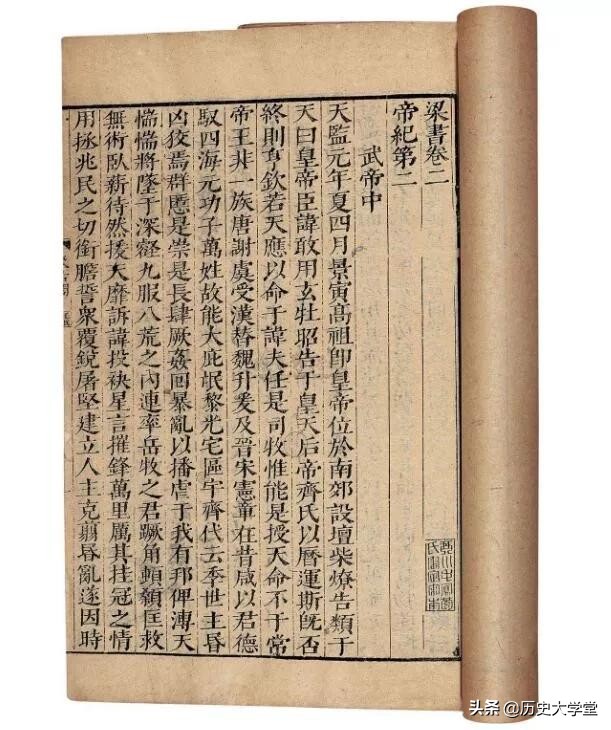 梁書卷二
帝紀第二
武帝中
天監元年夏四月景寅高祖即皇帝位於南郊設壇柴燎告類于
天曰皇帝臣諱敢用玄牡昭告于皇天后帝齊氏以曆運斯旣否
終則亨欽若天應以命于諱夫任是司牧惟能是授天命不于常
帝王非一族唐謝虞受漢替魏升爰及晉宋憲章在昔咸以君德
馭四海元功子萬姓故能大庇氓黎光宅區宇齊代云季世主昬
凶狡焉群慝是崇是長肆厥姦回暴亂以播虐于我有邦俾溥天
惴惴將墜于深壑九服八荒之內連率岳牧之君蹶角頓顙匡救
無術臥薪待然援天靡訴諱投袂星言摧鋒萬里厲其挂冠之情
用拯兆民之切銜膽誓衆覆銳屠堅建立人主克翦昬亂遂因時
头条 @历史大学堂